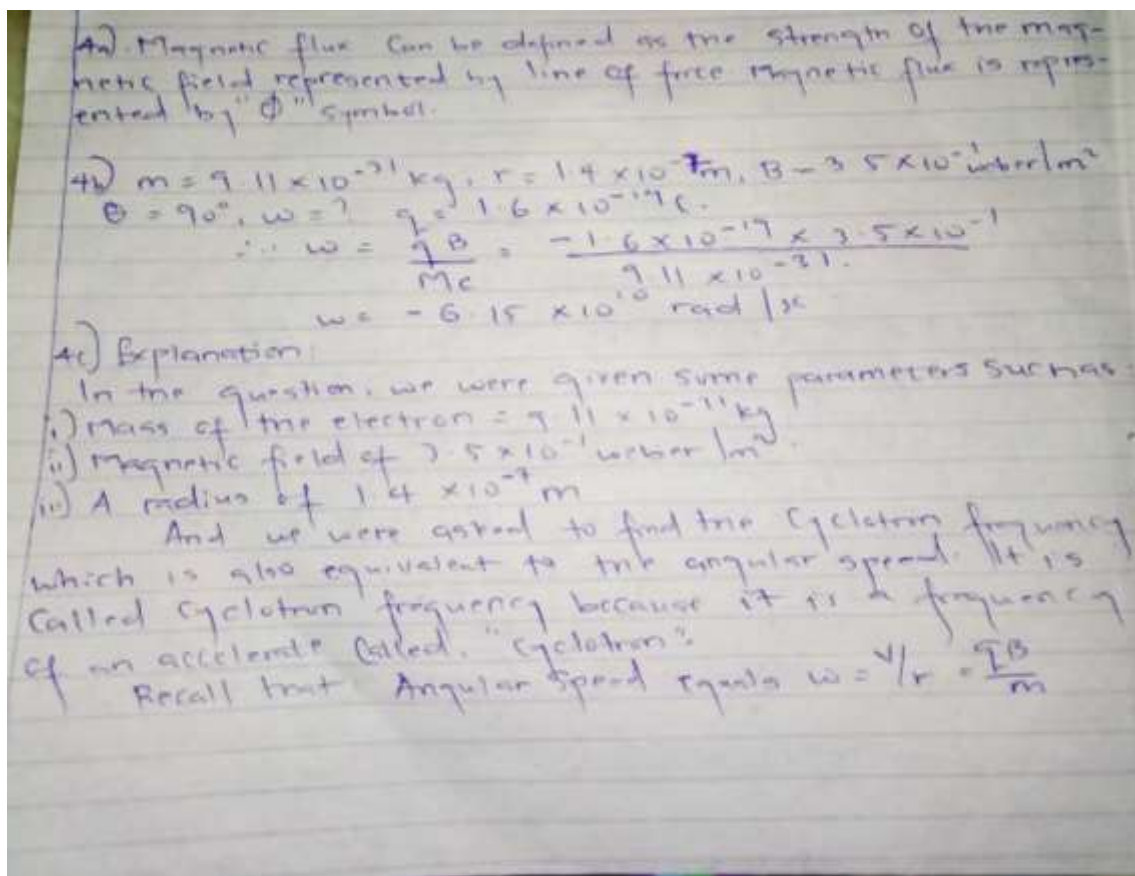 4a). Magnetic flux can be defined as the strength of the mag-
netic field represented by line of force magnetic flux is repres-
ented by "Φ" symbol.
4b) m = 9.11 × 10⁻³¹ kg, r = 1.4 × 10⁻⁷m, B = 3.5 × 10⁻¹ weber/m²
θ = 90°, w = ? q = 1.6 × 10⁻¹⁹ C.
∴ w = qB/Me = -1.6 × 10⁻¹⁹ × 3.5 × 10⁻¹ / 9.11 × 10⁻³¹.
w = - 6.15 × 10¹⁰ rad/s
4c) Explanation:
In the question, we were given some parameters such as:
i.) Mass of the electron = 9.11 × 10⁻³¹ kg
ii) Magnetic field of 3.5 × 10⁻¹ weber/m².
iii) A radius of 1.4 × 10⁻⁷ m
And we were asked to find the Cyclotron frequency
which is also equivalent to the angular speed. It is
Called cyclotron frequency because it is a frequency
of an accelerate called. "Cyclotron".
Recall that Angular Speed equals w = v/r = qB/m